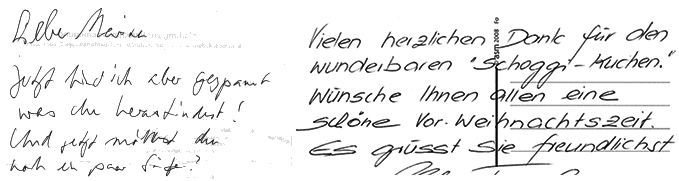 Lieber Marina
jetzt bin ich aber gespannt
was du herausfindest!
Und jetzt möchtest du
noch ein paar Sätze?
Vielen herzlichen Dank für den
wunderbaren "Schoggi-Kuchen."
Wünsche Ihnen allen eine
schöne Vor-Weihnachtszeit.
Es grüsst Sie freundlichst
asm 2008 Fo